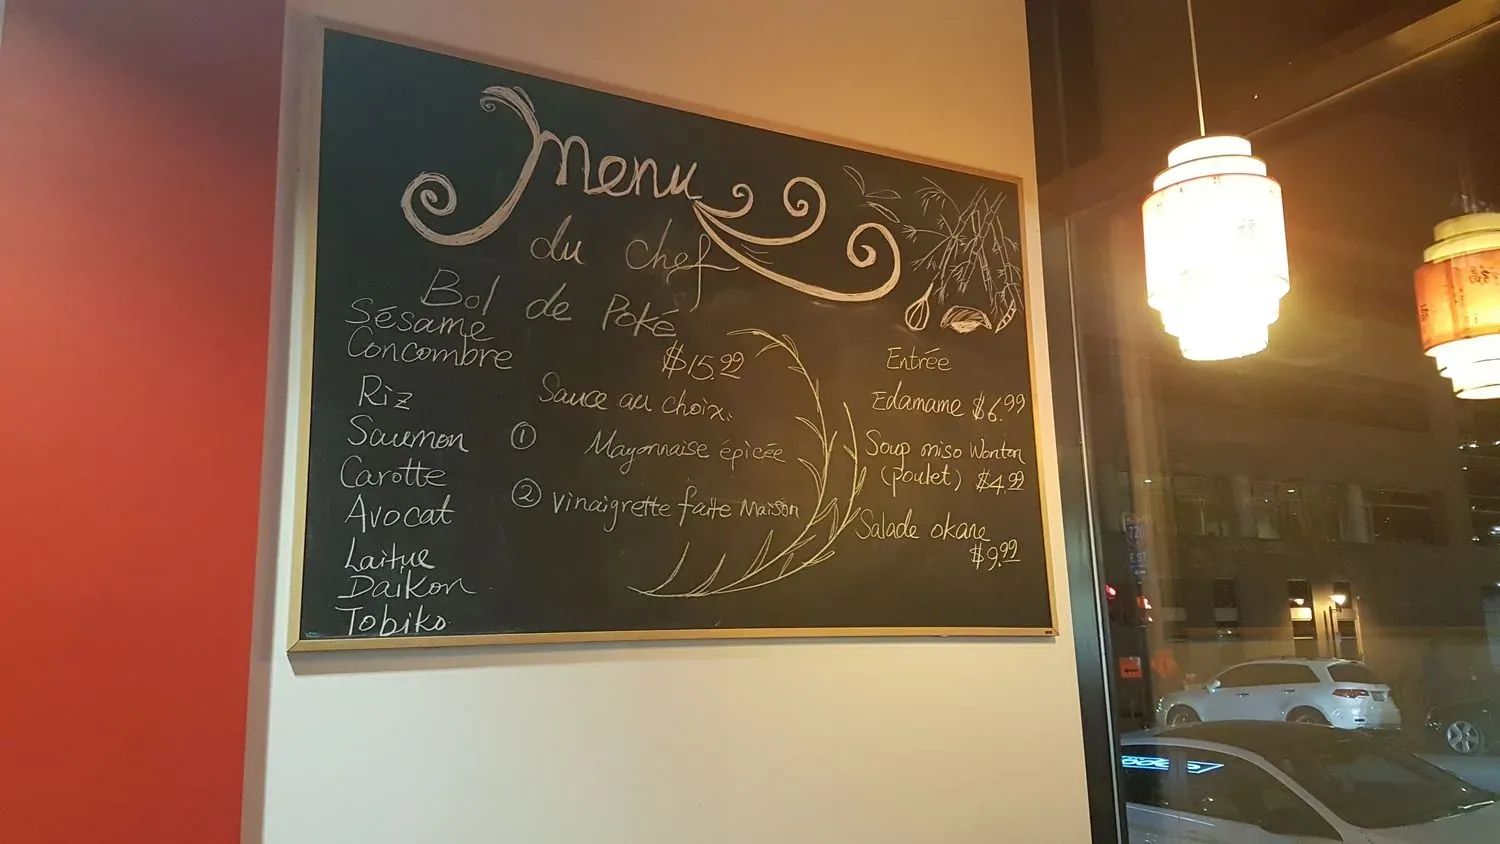 Menu
du chef
Bol de Poké
$15.99
Sésame
Concombre
Riz
Saumon
Carotte
Avocat
Laitue
Daikon
Tobiko
Sauce au choix:
① Mayonnaise épicée
② Vinaigrette faite Maison
Entrée
Edamame $6.99
Soup miso Wonton
(poulet) $4.99
Salade okane
$9.99
720
EST